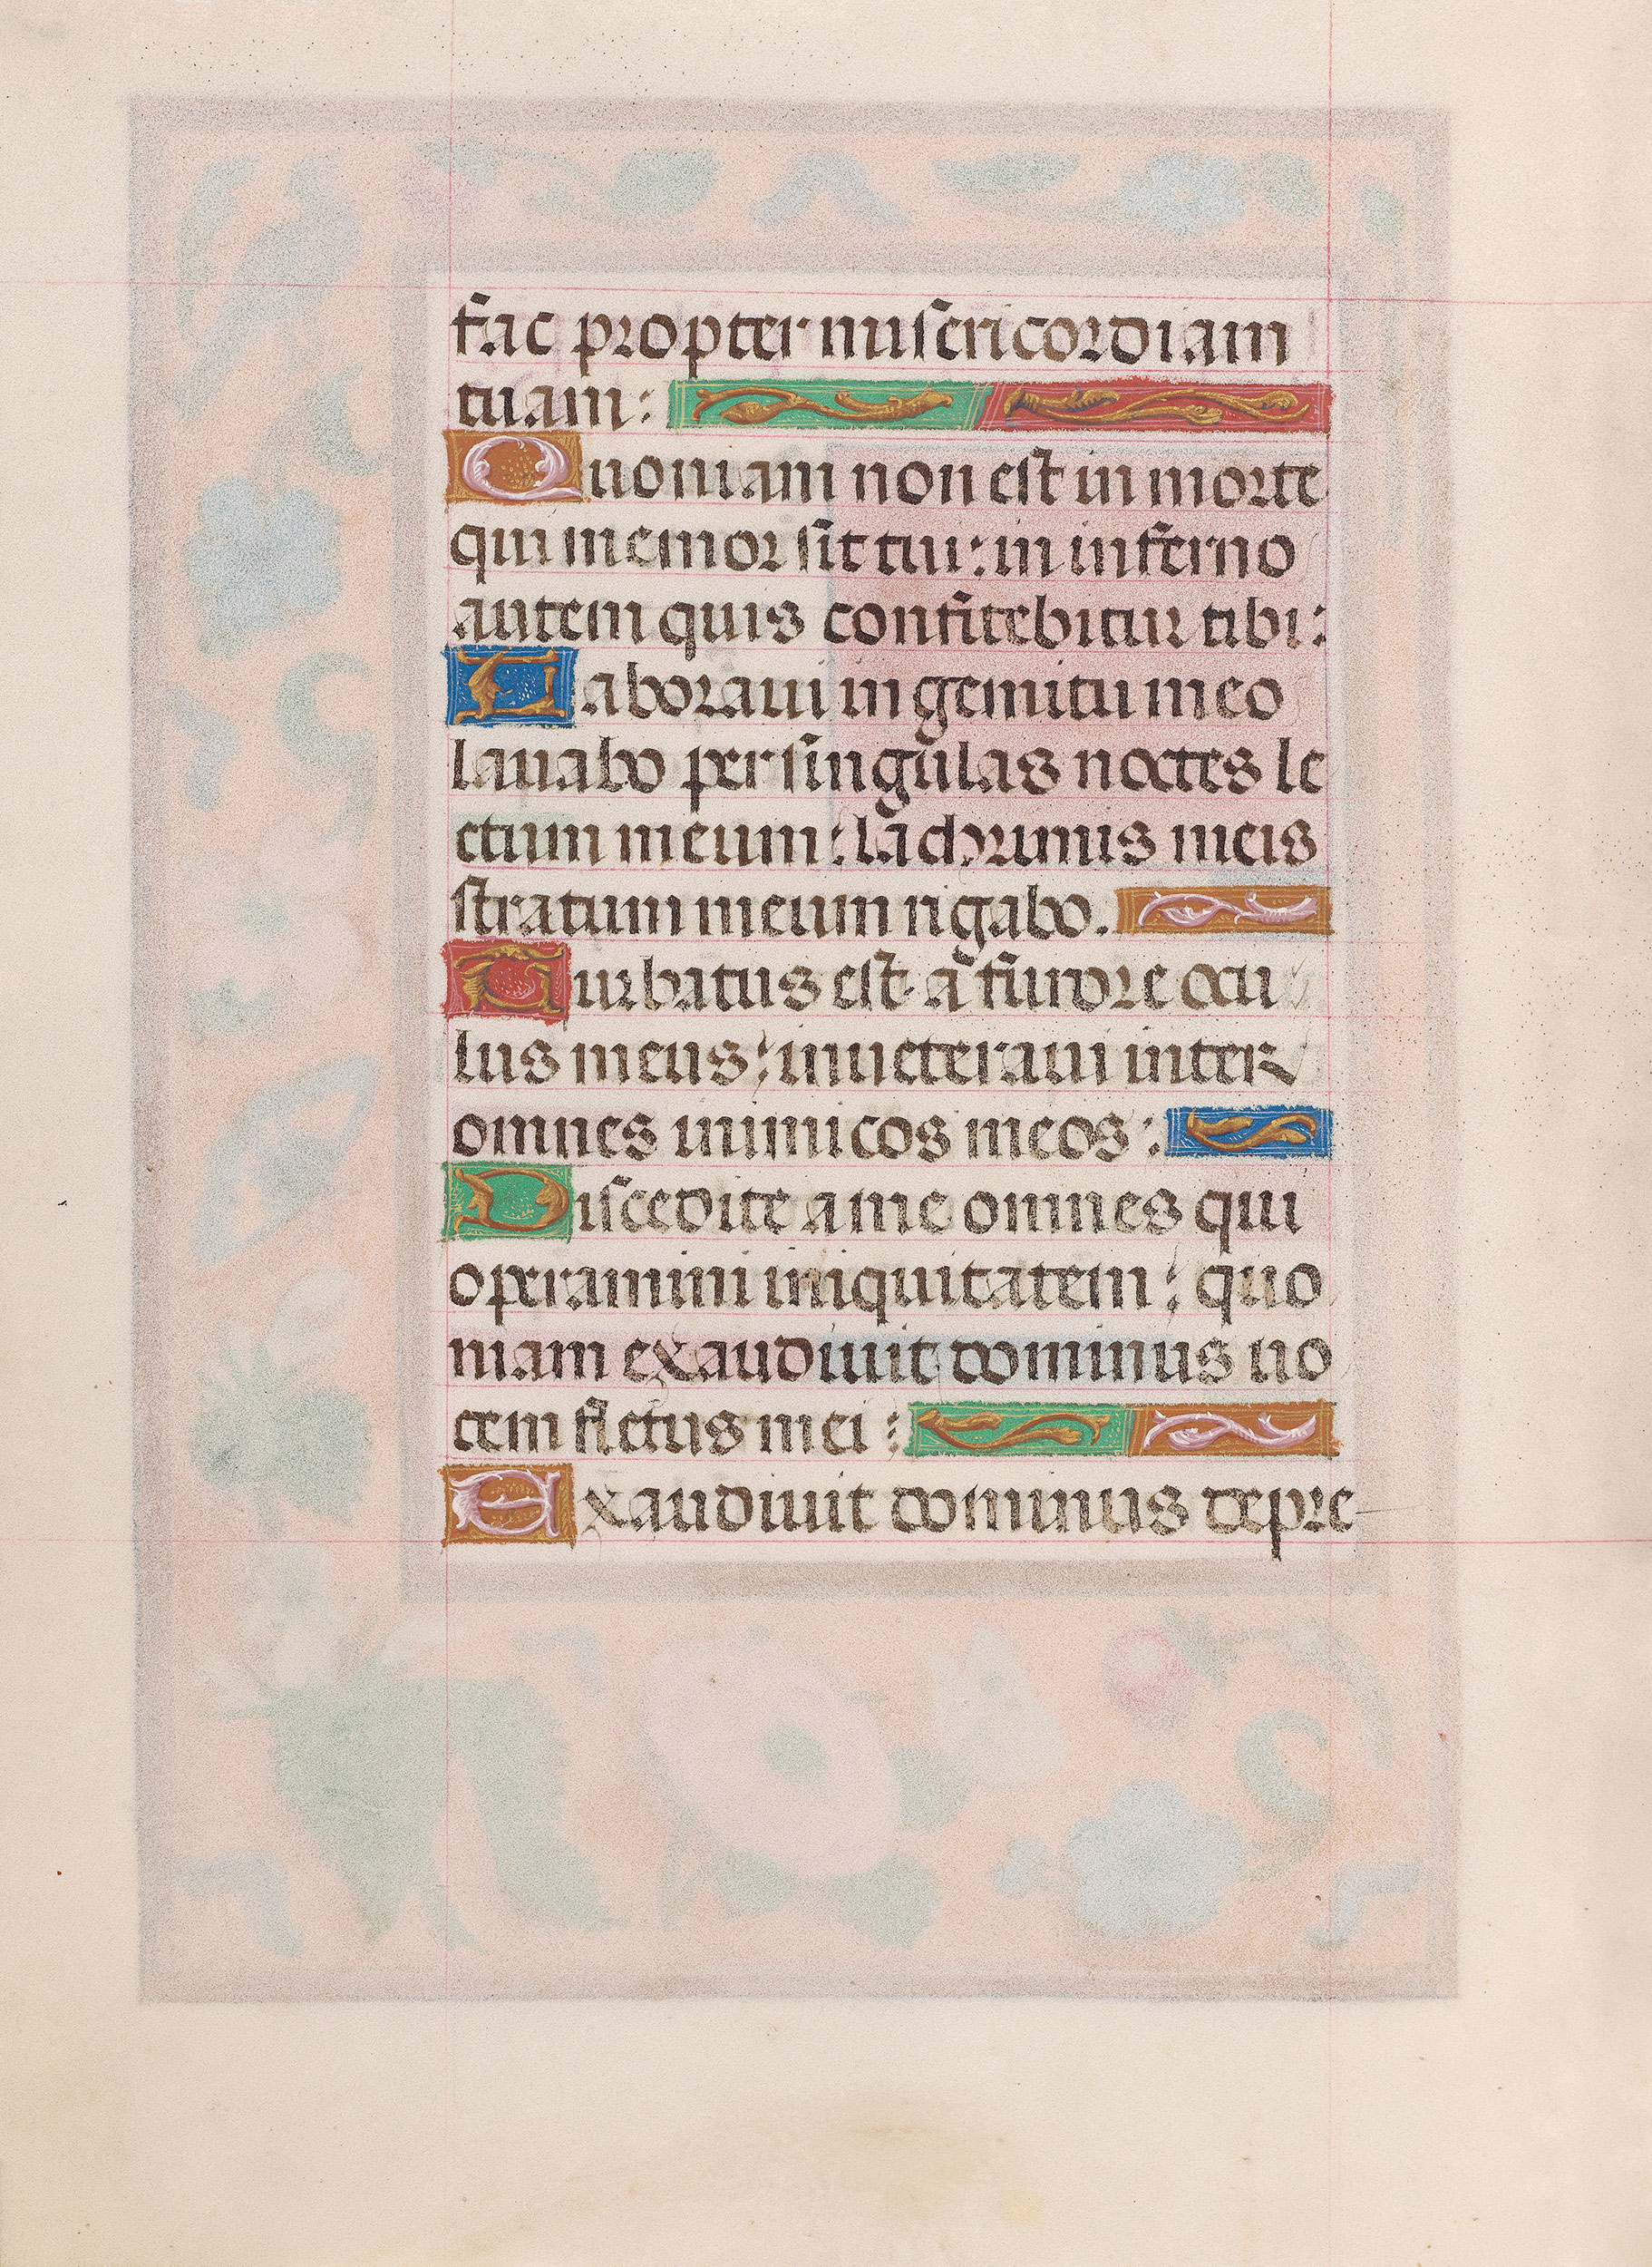 fac propter misericordiam
tuam:
Quoniam non est in morte
qui memor sit tui: in inferno
autem quis confitebitur tibi:
Laboraui in gemitu meo
lauabo per singulas noctes le
ctum meum: lachrimis meis
stratum meum rigabo.
Turbatus est a furore ocu
lus meus: inueteraui inter
omnes inimicos meos:
Discedite a me omnes qui
operamini iniquitatem: quo
niam exaudiuit dominus uo
cem fletus mei:
Exaudiuit dominus depre-